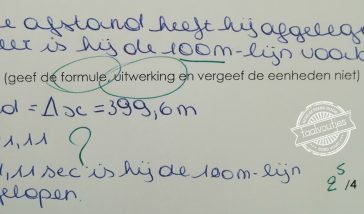 e afstand heeft hij afgeleg
eer is hij de 100m-lijn voorb
(geef de formule, uitwerking en vergeef de eenheden niet)
d = Δx = 399,6m
1,11 ?
1,11 sec is hij de 100m-lijn
gelopen.
taalvoutjes
2,5 /4